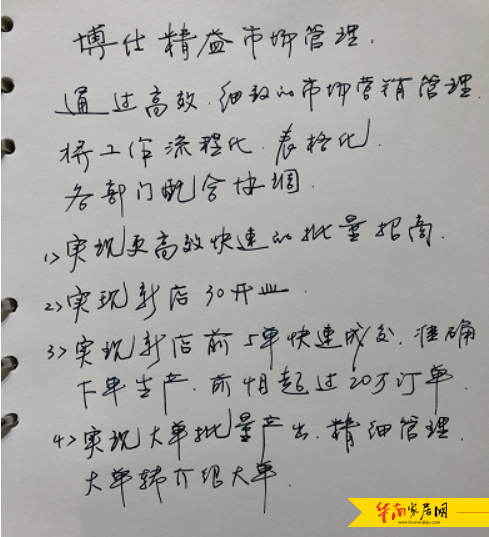 博仕精益市场管理.
通过高效.细致的市场营销管理.
将工作流程化.表格化.
各部门配合协调.
1>实现更高效快速的批量招商.
2>实现新店30开业.
3>实现新店前5单快速成交.准确
下单生产.前4月起过20万订单.
4>实现大单批量产出.精细管理.
大单转介绍大单.
华南家居网